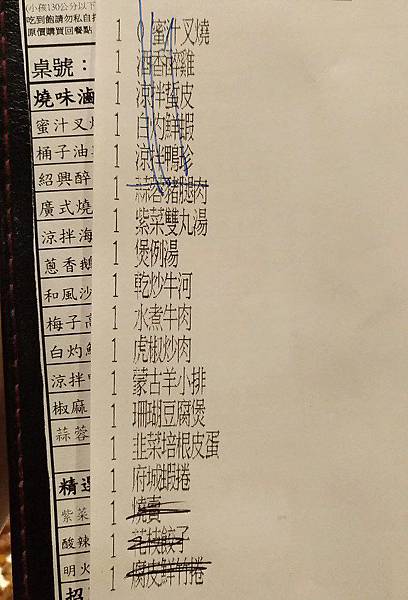 (小孩130公分以下
吃到飽請勿私自打
原價購買回餐點
桌號：
燒味滷
蜜汁叉燒
桶子油
紹興醉
廣式燒
涼拌海
蔥香鵝
和風沙
梅子高
白灼鮮
涼拌
椒麻
蒜蓉
精選
紫菜
酸辣
明火
招
1 蜜汁叉燒
1 酒香醉雞
1 涼拌蜇皮
1 白灼鮮蝦
1 涼拌鴨珍
1 蒜蓉豬腿肉
1 紫菜雙丸湯
1 煲例湯
1 乾炒牛河
1 水煮牛肉
1 虎椒炒肉
1 蒙古羊小排
1 珊瑚豆腐煲
1 韭菜培根皮蛋
1 府城蝦捲
1 燒賣
1 花枝餃子
1 腐皮鮮竹捲